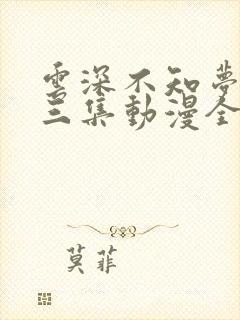 雲深不知夢
三集動漫全
莫菲